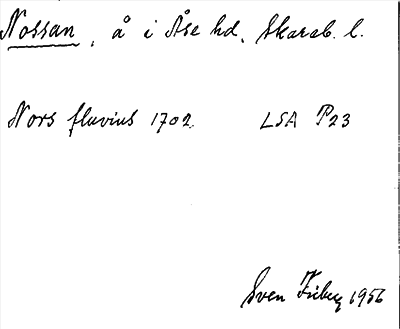 Nossan, å i Åse hd, Skarab. l.
Nors fluvius 1702. LSA P23
Sven Friberg 1956